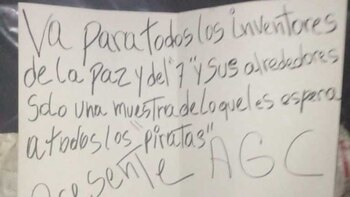 Va para todos los inventores
de la Paz y del "7" y sus alrededores
solo una muestra de lo que les espera
a todos los piratas"
Presente AGC